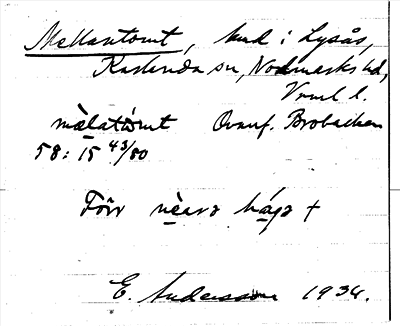 Mellantomt, hmd i Lysås,
Karlanda sn, Nordmarks hd,
Vrml l.
mèlatòmt Ovanf. Brobacken
58:15 43/80
Förr nèara hága +
E. Andersson 1934.